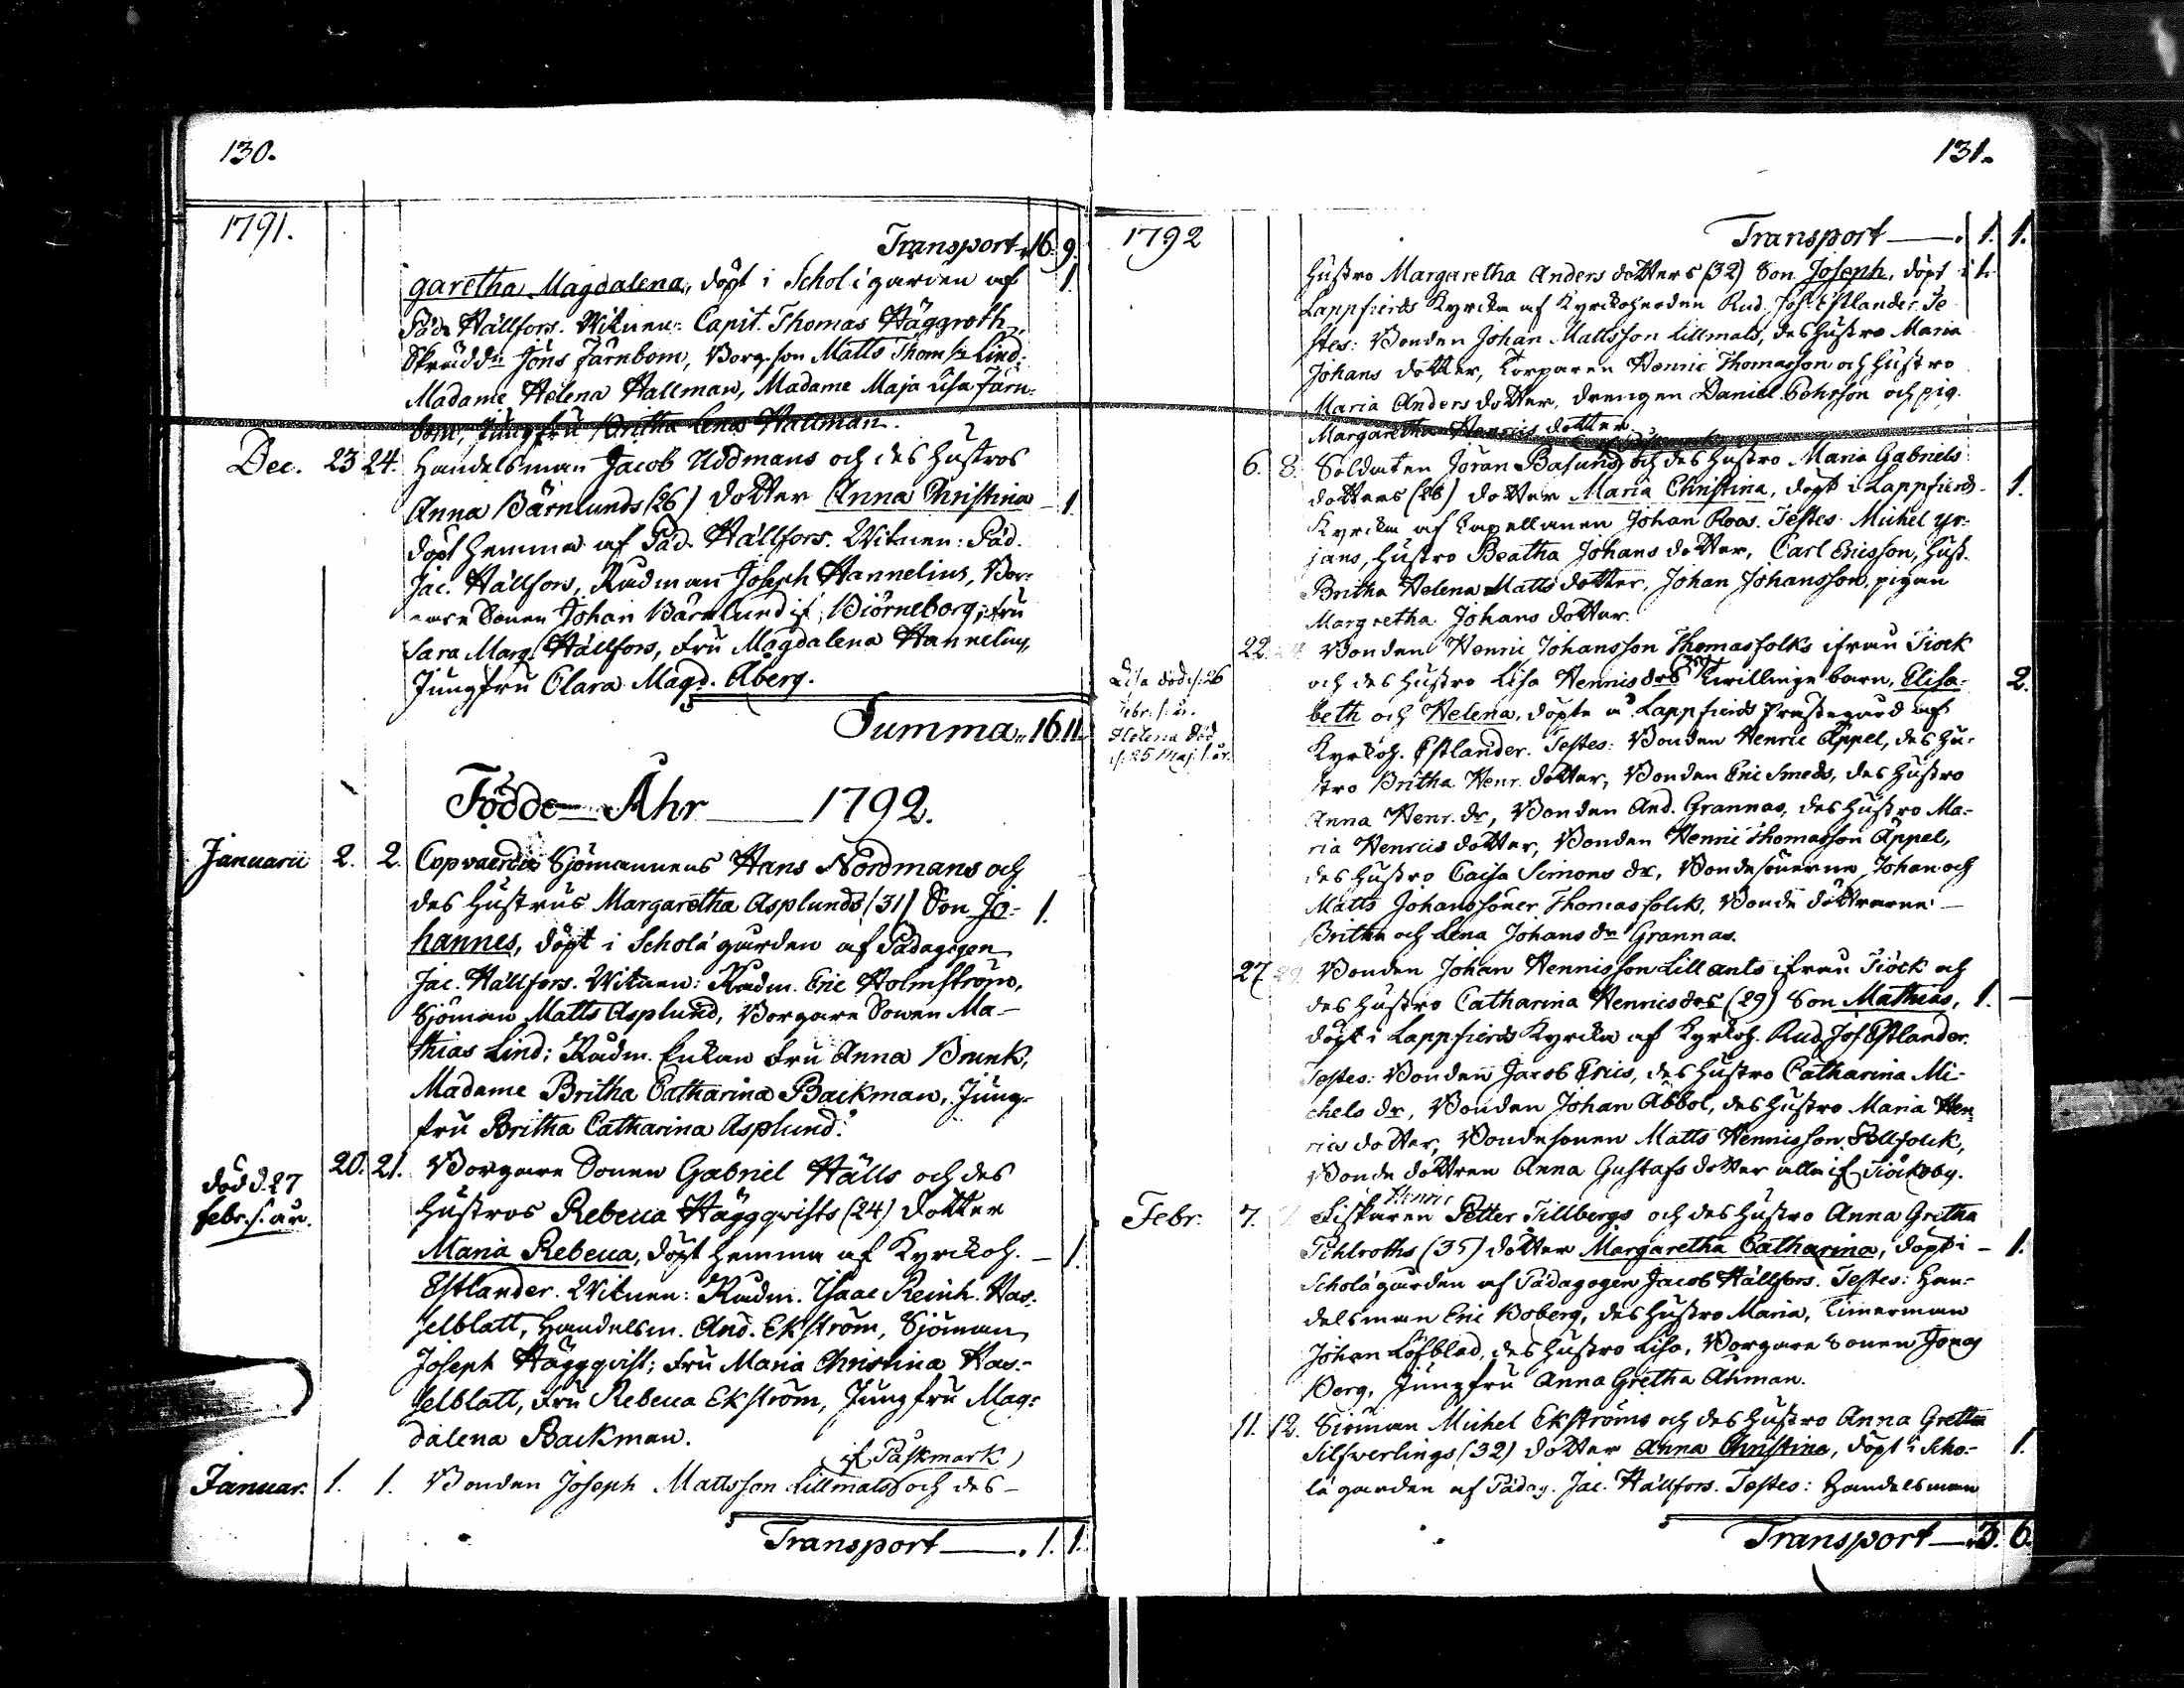 130.
1791.
Transport 16. 9.
garetha Magdalena, döpt i Scholægården af 1
Päd. Hällfors. Witnen: Capit. Thomas Häggroth,
Skrädd. Jöns Järnbom, Borg. son Matts Thom: s: Lind;
Madame Helena Hallman, Madame Maja Lisa Järn-
bom, Jungfru Britha Lena Hallman.
Dec. 23 24. Handelsman Jacob Uddmans och des Hustros
Anna Bärnlunds (26) dotter Anna Christina 1.
döpt hemma af Päd. Hällfors. Witnen: Päd.
Jac. Hällfors, Rådman Joseph Hannelius, Bor-
gare Sonen Johan Bärnlund if: Biörneborg; fru
Sara Marg. Hällfors, fru Magdalena Hannelius,
Jungfru Clara Magd. Åberg.
Summa 16. 11.
Födde Åhr 1792.
Januarii 2. 2. Copvaerdie Sjömannens Hans Nordmans och
des Hustrus Margaretha Asplunds (31) Son Jo- 1.
hannes, döpt i Scholægården af Pädagogen
Jac. Hällfors. Witnen: Rådm. Eric Holmström,
Sjöman Matts Asplund, Borgare Sonen Ma-
thias Lind; Rådm. Enkan fru Anna Brunk,
Madame Britha Catharina Backman, Jung-
fru Britha Catharina Asplund.
död d. 27 febr. s. år.
20. 21. Borgare Sonen Gabriel Hälls och des
Hustros Rebecca Häggqvists (24) dotter
Maria Rebecca, döpt hemma af Kyrckoh. 1.
Estlander. Witnen: Rådm. Isaac Reinh. Has-
selblatt, Handelsm. And. Ekström, Sjöman
Joseph Häggqvist; fru Maria Christina Has-
selblatt, fru Rebecca Ekström, Jungfru Mag-
dalena Backman.
if Påskmark
Januar. 1. 1. Bonden Joseph Mattsson Lillmats och des
Transport 1. 1.
131.
1792
Transport 1. 1.
Hustro Margaretha Anders dotters (32) Son Joseph, döpt i 1.
Lappfierds Kyrcka af Kyrckoherden Rud. Jos. Estlander. Te-
stes: Bonden Johan Mattsson Lillmats, des Hustro Maria
Johans dotter, Torparen Henric Thomasson och Hustro
Maria Anders dotter, drengen Daniel Pehrson och pig.
Margaretha Henrics dotter.
6. 8. Soldaten Jöran Basuns och des Hustro Maria Gabriels
dotters (28) dotter Maria Christina, döpt i Lappfierds 1.
Kyrcka af Capellanen Johan Roos. Testes: Michel Yr-
jans, Hustro Beatha Johans dotter, Carl Ericsson, Hust.
Britha Helena Matts dotter, Johan Johansson, pigan
Margretha Johans dotter.
22. Bonden Henric Johansson Thomasfolks ifrån Tiöck
Lisa död d: 26 Febr. s: år.
Helena död d: 25 Maj s: år.
och des Hustro Lisa Henrics drs Twillinge barn, Elisa- 2.
beth och Helena, döpte å Lappfierds Prestegård af
Kyrkoh. Estlander. Testes: Bonden Henric Äppel, des Hu-
stro Britha Henr. dotter, Bonden Eric Smeds, des Hustro
Anna Henr. dr, Bonden And. Grannas, des Hustro Ma-
ria Henrics dotter, Bonden Henric Thomasson Äppel,
des Hustro Caisa Simons dr, Bondesönerne Johan och
Matts Johanssöner Thomasfolck, Bonde döttrarne
Britha och Lena Johans dr Grannas.
27. 29. Bonden Johan Henricsson Lillants ifrån Tiöck och
des Hustro Catharina Henrics drs (29) Son Mathias, 1.
döpt i Lappfierds Kyrcka af Kyrkoh. Rud. Jos. Estlander.
Testes: Bonden Jacob Erics, des Hustro Catharina Mi-
chels dr, Bonden Johan Abbol, des Hustro Maria Hen-
rics dotter, Bondesonen Matts Henricsson Follfolck,
Bonde dottren Anna Gustafs dotter alla if. Tiöckby.
Henric
Febr. 7. Fiskaren Petter Tillbergs och des Hustro Anna Gretha
Pihlroths (35) dotter Margaretha Catharina, döpt i 1.
Scholægården af Pädagogen Jacob Hällfors. Testes: Han-
delsman Eric Boberg, des Hustro Maria, Timerman
Johan Löfblad, des Hustro Lisa, Borgare Sonen Jonas
Berg, Jungfru Anna Gretha Åhman.
11. 12. Siöman Michel Ekströms och des Hustro Anna Gretha
Silfwerlings (32) dotter Anna Christina, döpt i Scho- 1.
lægården af Pädag. Jac. Hällfors. Testes: Handelsman
Transport 3. 6.